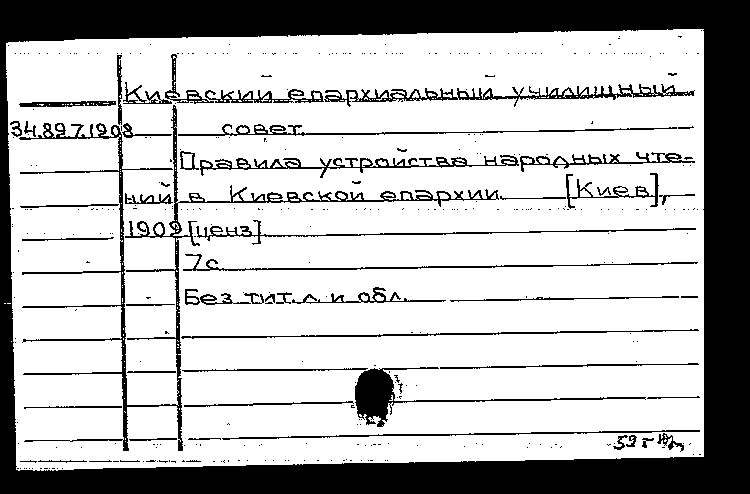 Киевский епархиальный училищный
34.897.1908 совет.
Правила устройства народных чте=
ний в Киевской епархии. [Киев],
1909 [ценз]
7с
Без тит. л. и обл.